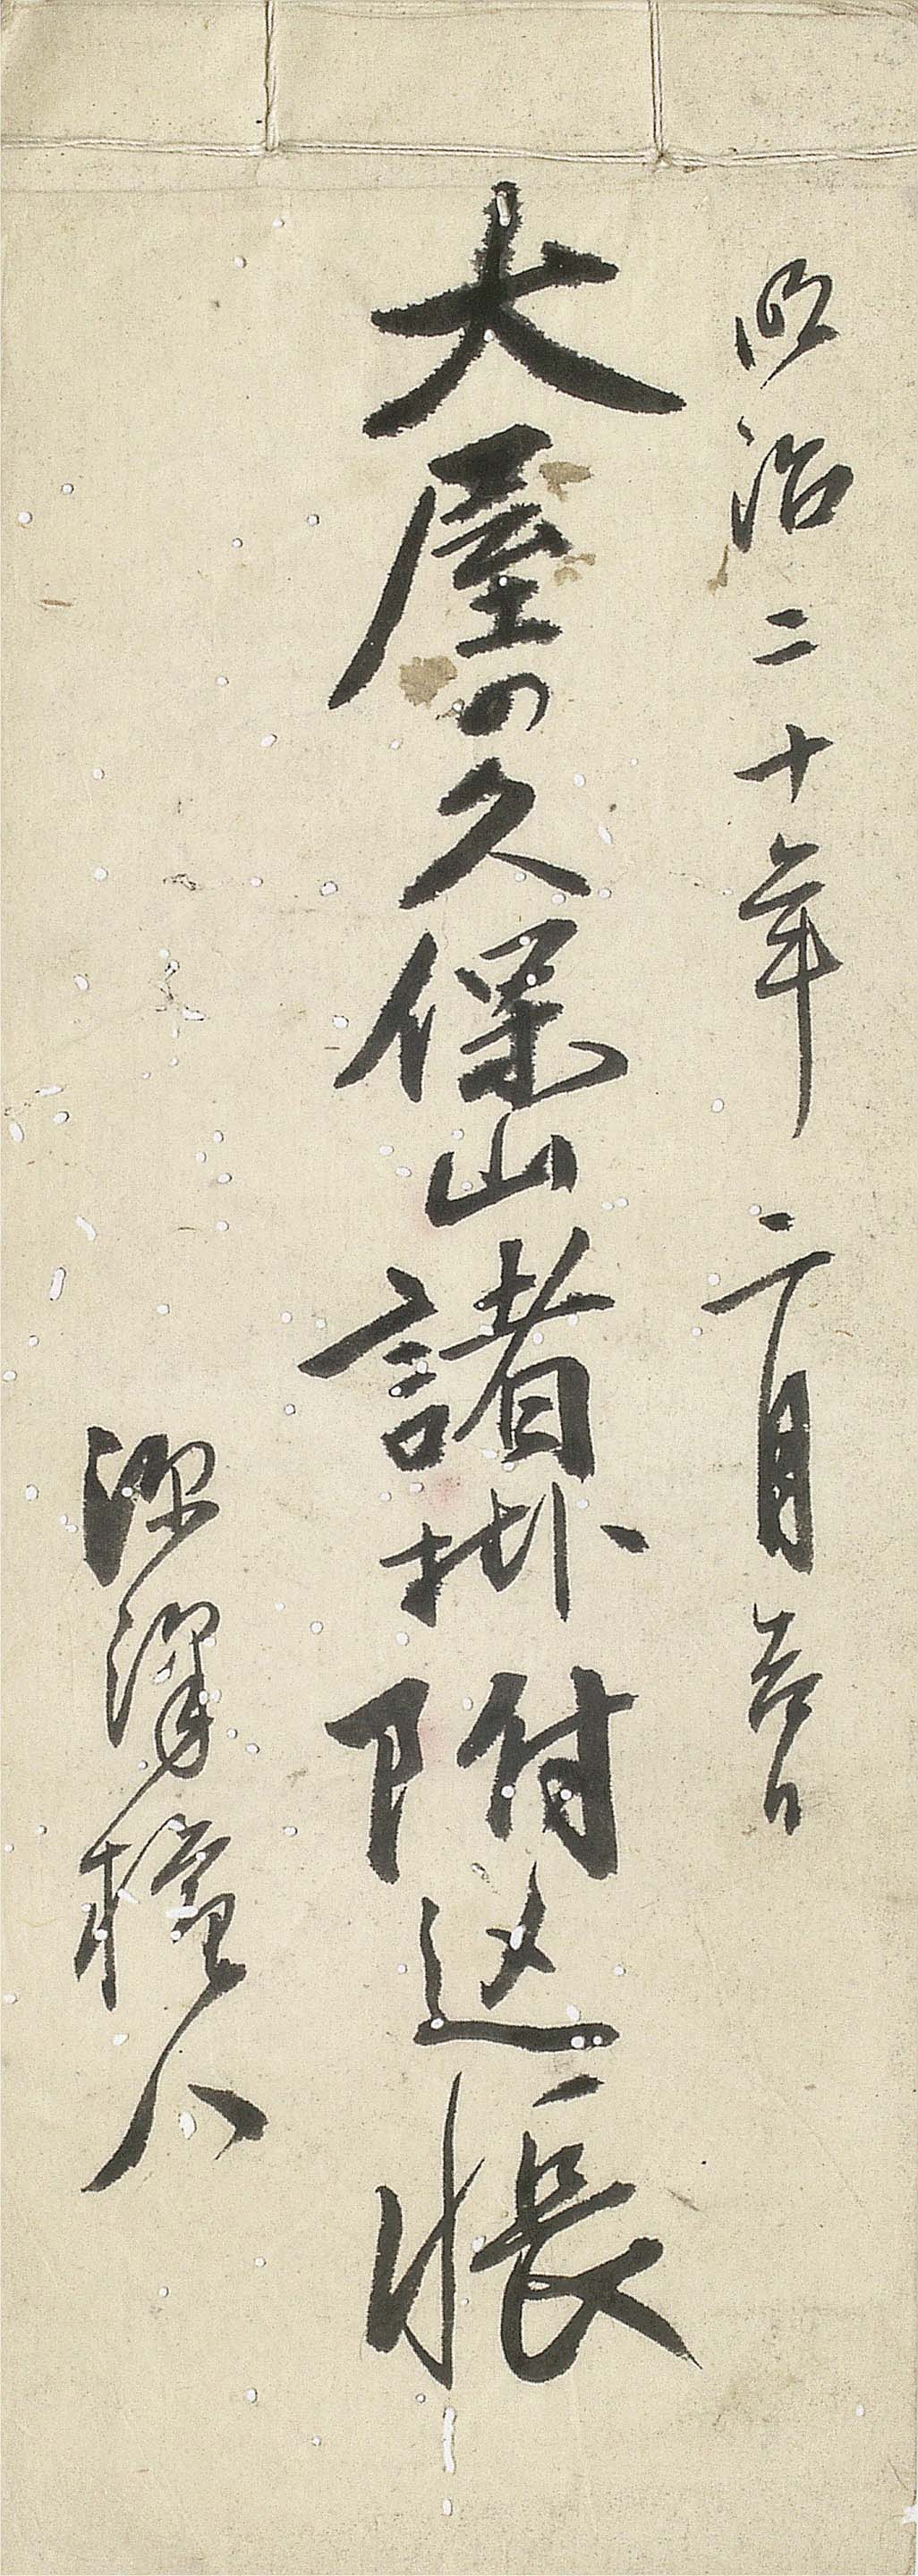 明治二十年二月吉日
大屋の久保山諸掛附込帳
深澤権八